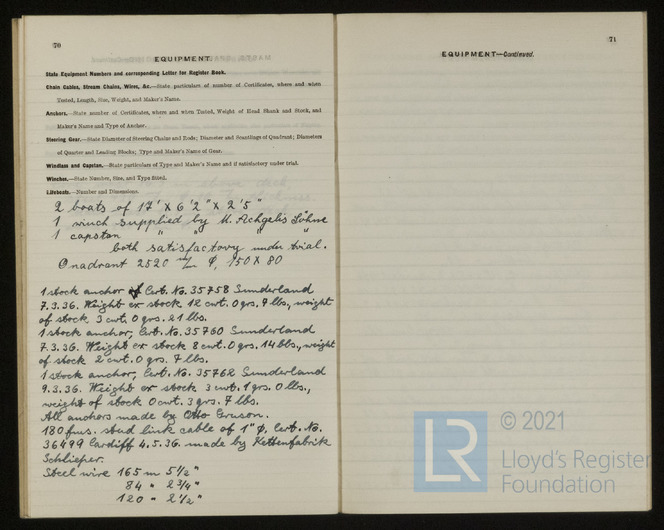 70
EQUIPMENT.
State Equipment Numbers and corresponding Letter for Register Book.
Chain Cables, Stream Chains, Wires, &c.—State particulars of number of Certificates, where and when
Tested, Length, Size, Weight, and Maker's Name.
Anchors.—State number of Certificates, where and when Tested, Weight of Head Shank and Stock, and
Maker's Name and Type of Anchor.
Steering Gear.—State Diameter of Steering Chains and Rods; Diameter and Scantlings of Quadrant; Diameters
of Quarter and Leading Blocks; Type and Maker's Name of Gear.
Windlass and Capstan.—State particulars of Type and Maker's Name and if satisfactory under trial.
Winches.—State Number, Size, and Type fitted.
Lifeboats.—Number and Dimensions.
2 boats of 17' X 6' 2" X 2' 5"
1 winch supplied by M. Achgelis Söhne
1 capstan " " " "
both satisfactory under trial.
Quadrant 2520 m/m φ, 150 X 80
1 stock anchor Cert. No. 35758 Sunderland
7.3.36. Weight ex stock 12 cwt. 0 qrs. 7 lbs., weight
of stock 3 cwt. 0 qrs. 21 lbs.
1 stock anchor, Cert. No. 35760 Sunderland
7.3.36. Weight ex stock 8 cwt. 0 qrs. 14 lbs., weight
of stock 2 cwt. 0 qrs. 7 lbs.
1 stock anchor, Cert. No. 35762 Sunderland
9.3.36. Weight ex stock 3 cwt. 1 qrs. 0 lbs.,
weight of stock 0 cwt. 3 qrs. 7 lbs.
All anchors made by Otto Gruson.
180 fms. stud link cable of 1" φ, Cert. No.
36499 Cardiff 4.5.36. made by Kettenfabrik
Schlieper.
Steel wire 165 m 5 1/2 "
84 " 2 3/4 "
120 " 2 1/2 "
71
EQUIPMENT—Continued.
LR
© 2021
Lloyd's Register
Foundation